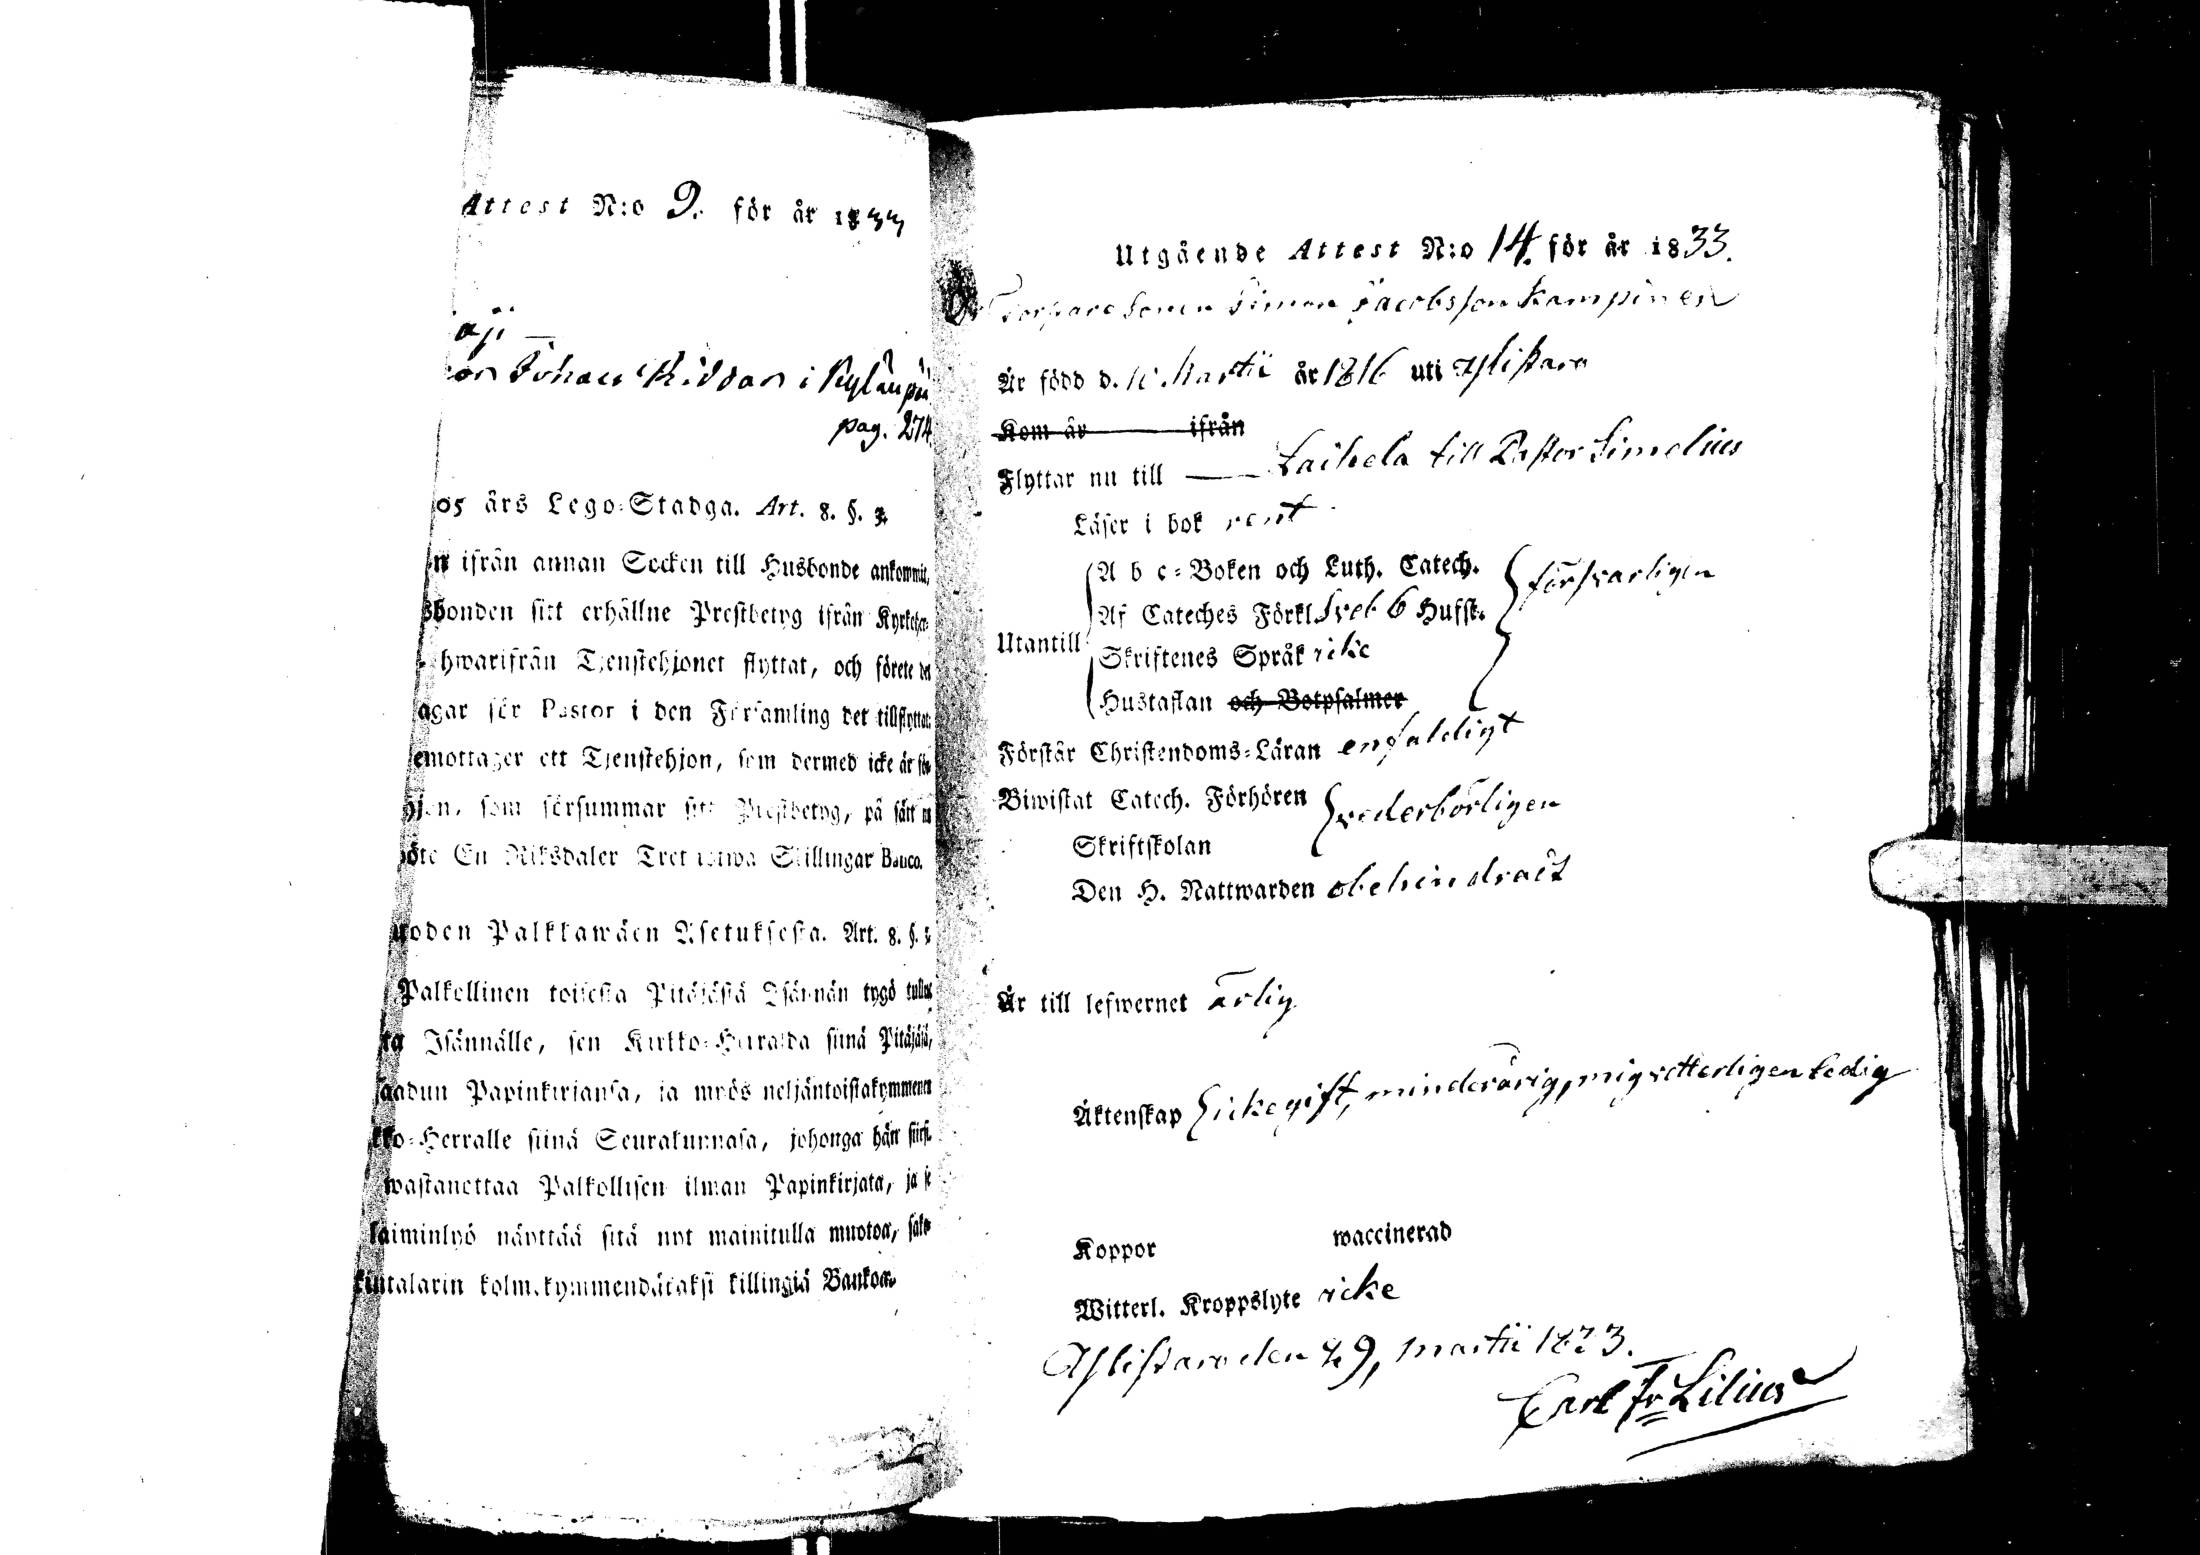 Attest N:o 9. för år 1833
aji
on Johan Riddar i Kyläupää
pag. 274
05 års Lego-Stadga. Art. 8. §. 3.
n ifrån annan Socken till Husbonde ankommit,
sbonden sitt erhållne Prestbetyg ifrån Kyrkoher-
hwarifrån Tjenstehjonet flyttat, och förete det
agar för Pastor i den Församling det tillflyttat:
emottager ett Tjenstehjon, som dermed icke är för-
hjon, som försummar sitt Prestbetyg, på sätt nu
böte En Riksdaler Trettiotwå Skillingar Banco.
uoden Palkkawäen Asetuksesta. Art. 8. §. 3.
Palkollinen toisesta Pitäjästä Isännän tygö tullut
ta Isännälle, sen Kirkko-Herralda siinä Pitäjäsä,
saadun Papinkirjansa, ja myös neljäntoistakymmenen
kko-Herralle siinä Seurakunnasa, johonga hän siirsi.
wastanottaa Palkollisen ilman Papinkirjata, ja se
laiminlyö näyttää sitä nyt mainitulla muotoa, sako-
kintalarin kolmekymmendäkaksi killingiä Bankoa.
Utgående Attest N:o 14. för år 1833.
Torpare Sonen Simon Jacobsson Kampinen
Är född d. 10 Martii år 1816 uti Ylistaro
Kom år ifrån
Flyttar nu till Laihela till Pastor Simelius
Läser i bok rent
A b c-Boken och Luth. Catech. försvarligen
Af Cateches Förkl. Sveb 6 Hufst.
Utantill
Skriftenes Språk icke
Hustaflan och Botpsalmer
Förstår Christendoms-Läran enfaldigt
Biwistat Catech. Förhören vederbörligen
Skriftskolan
Den H. Nattwarden obehindradt
Är till lefwernet ärlig
Äktenskap icke gift, minderårig, mig vetterligen ledig
Koppor waccinerad
Witterl. Kroppslyte icke
Ylistaro den 29, martii 1833.
Carl Fr Lilius